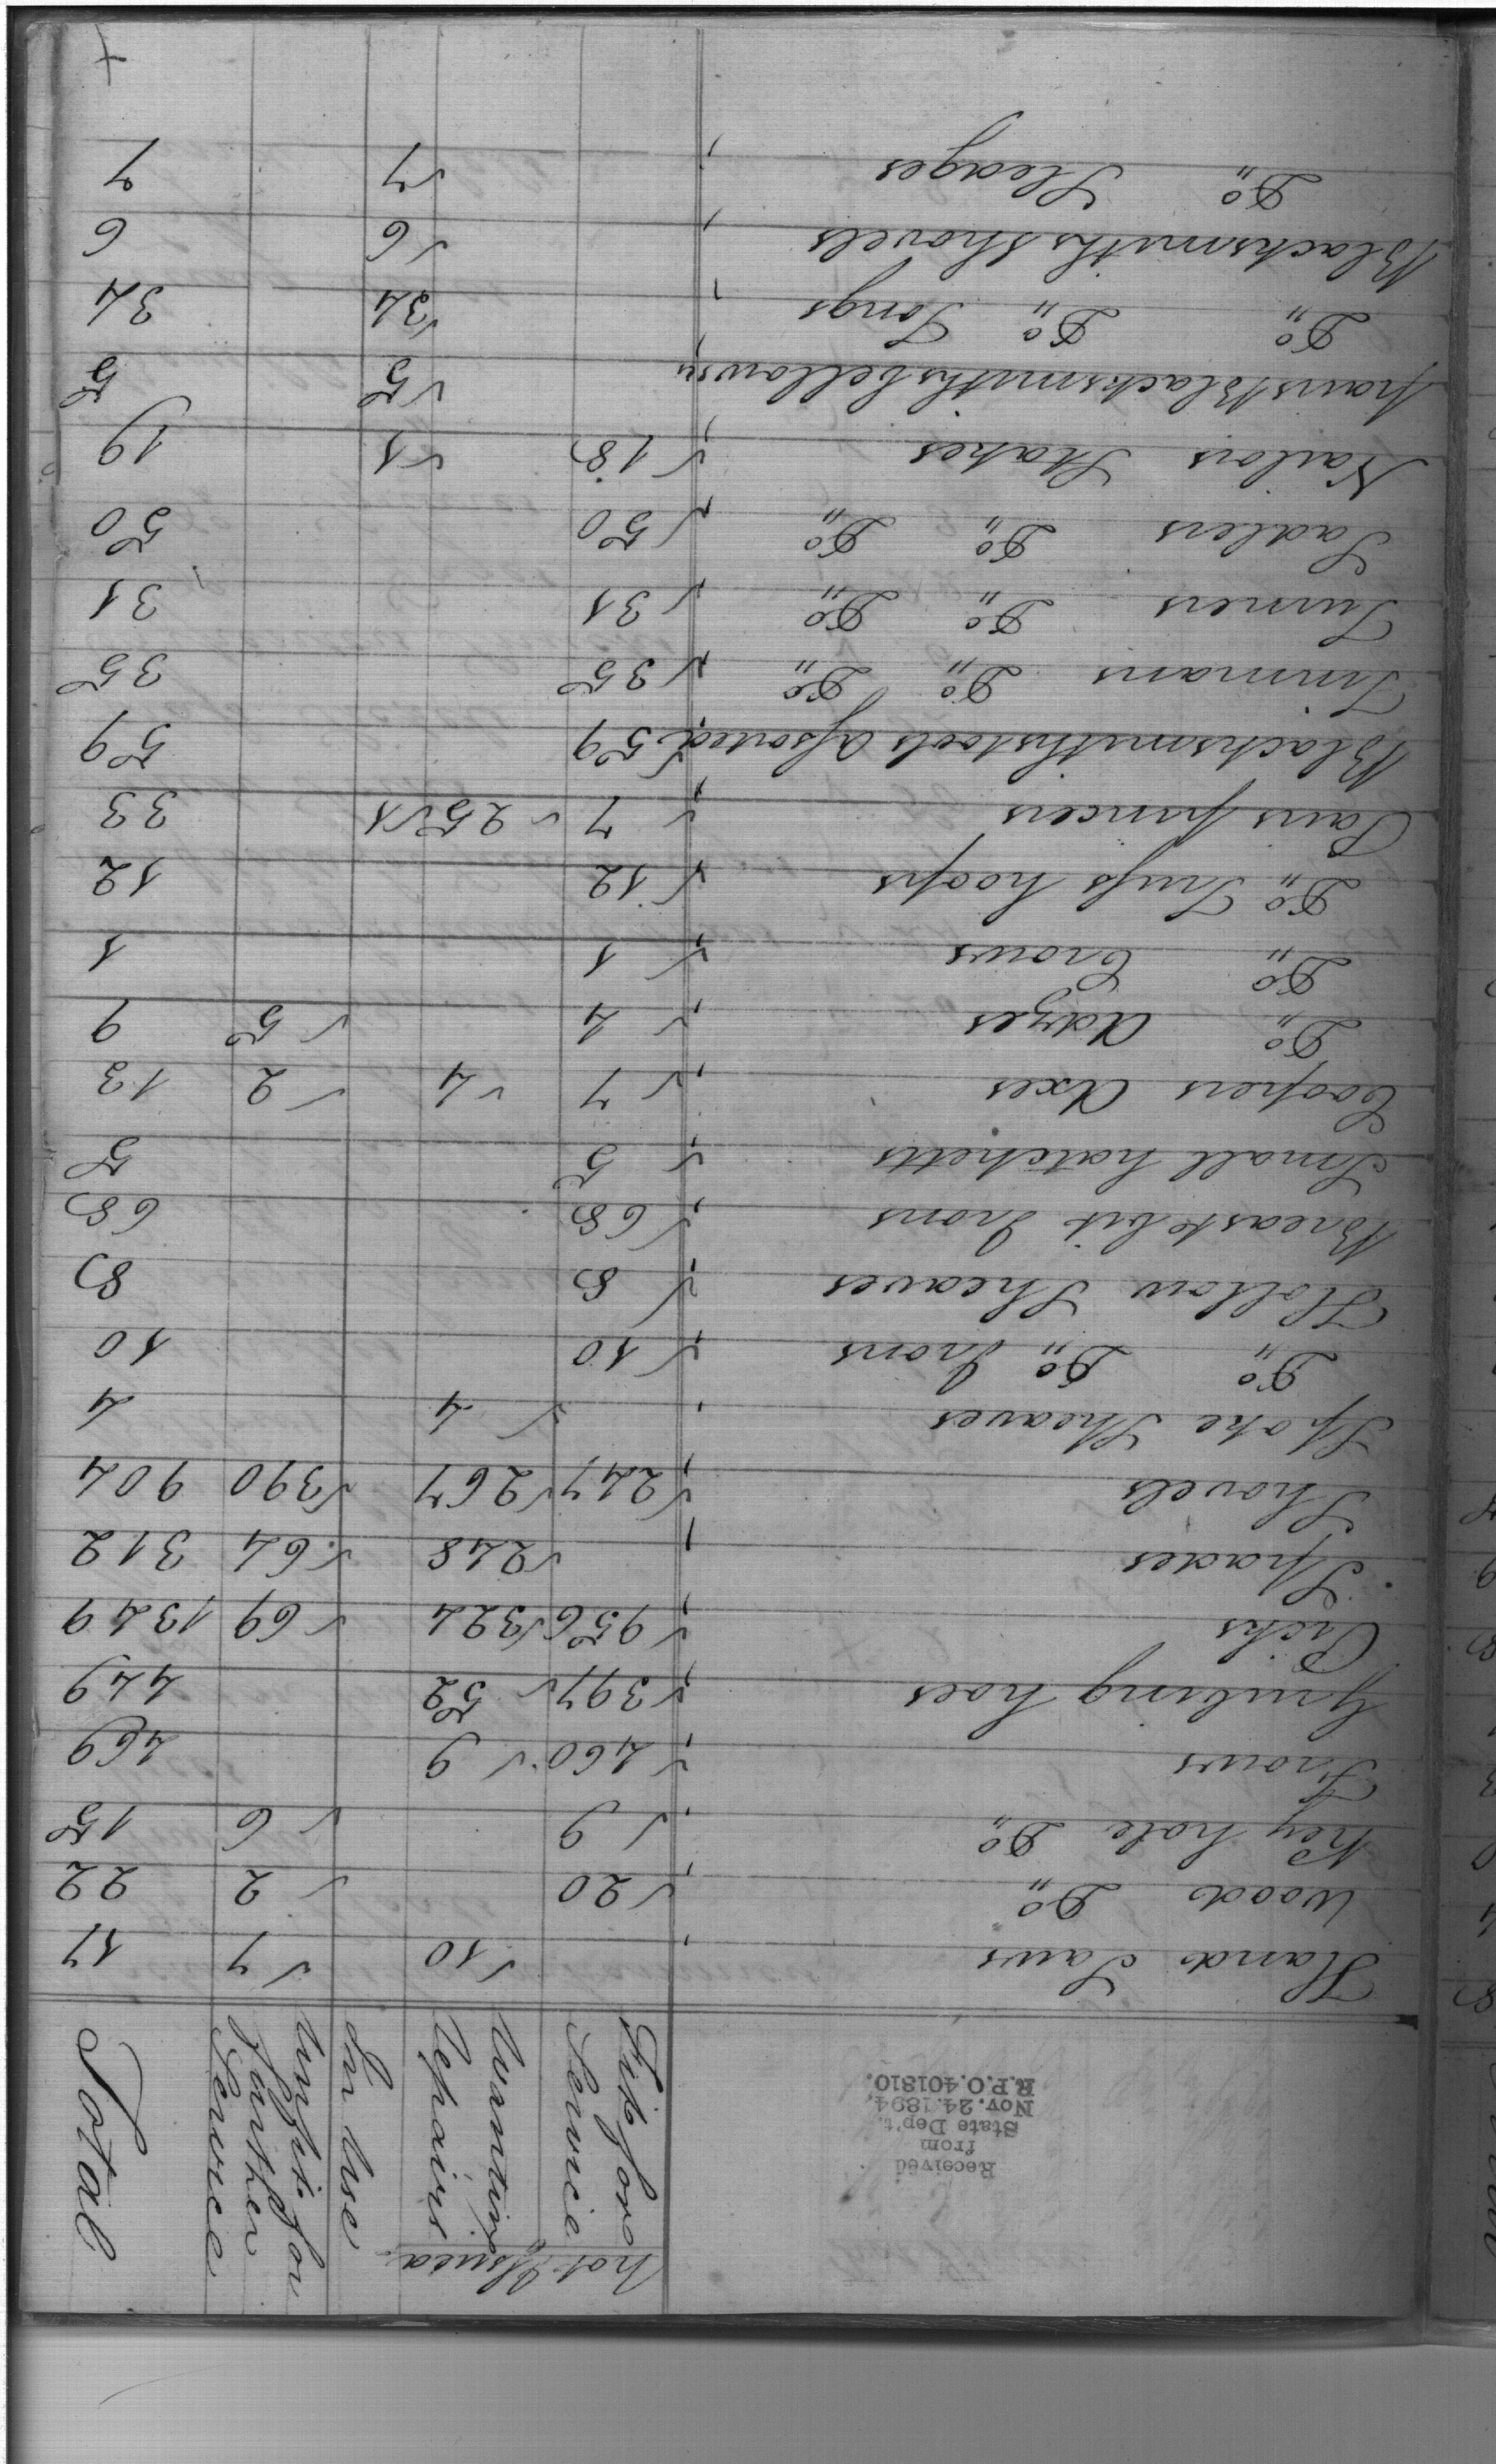 Received
from
State Dep't.
Nov. 24. 1894,
R.P.O. 401810.
not Issued
Fit for Service
Wanting Repairs
In Use
Unfit for further Service
Total
Hand Saws √10 √7 17
Wood Do„ √20 √2 22
Key hole Do„ √9 √6 15
Frows √460 √9 469
Grubing hoes √397 √52 449
Picks √956 √324 √69 1349
Spades √248 √64 312
Shovels √247 √267 √390 904
Spoke Sheaves √4 4
Do„ Do„ Irons √10 10
Hollow Sheaves √8 8
Breast bit Irons √68 68
Small hatchetts √5 5
Coopers Axes √7 √4 √2 13
Do„ Adzes √4 √5 9
Do„ Crows √1 1
Do„ Truss hoops √12 12
Pairs pincers √7 √25 √1 33
Blacksmiths tools Assorted √59 59
Tinmans Do„ Do„ √35 35
Turners Do„ Do„ √31 31
Sadlers Do„ Do„ √50 50
Nailors Stakes √18 √1 19
pairs Blacksmiths bellows„ √5 5
Do„ Do„ Tongs √34 34
Blacksmiths Shovels √6 6
Do„ Sledges √7 7